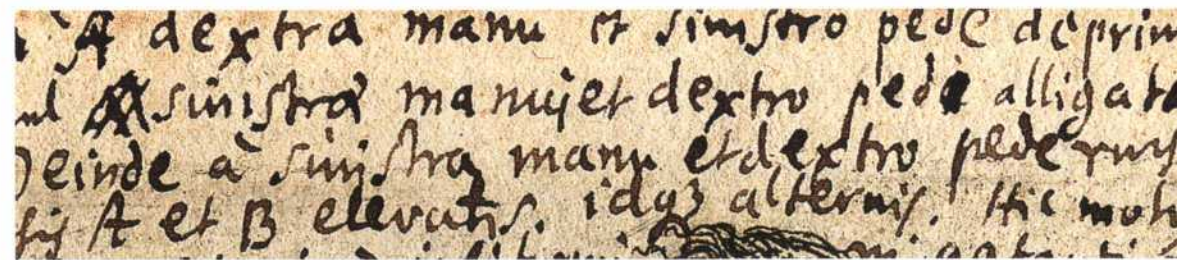 A dextra manu et sinistro pede deprim
sinistra manu et dextro pede alligat
Deinde à sinistra manu et dextro pede rurs
A et B elevatis. idq3 alternis. Hic mot